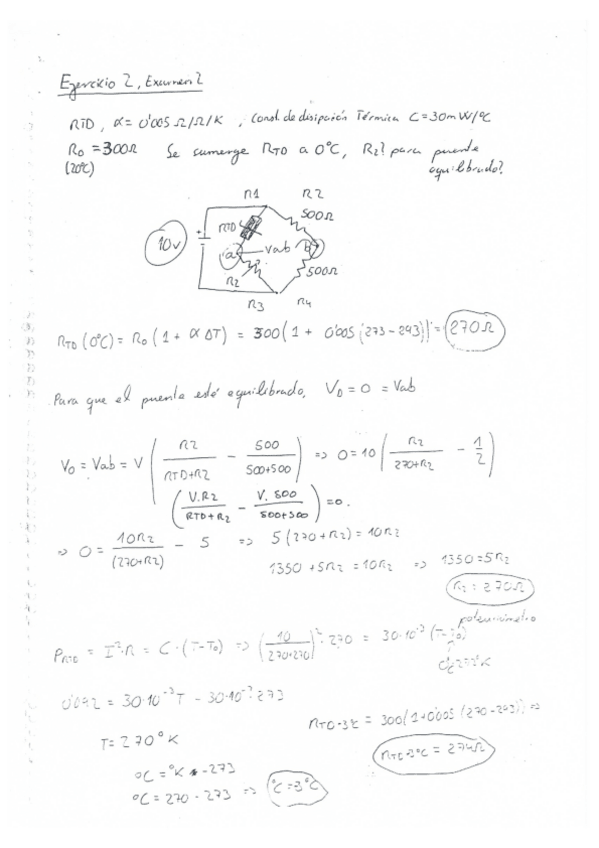 Ejercicio 2, Examen 2
RTD, α = 0'005 Ω/Ω/K, Const. de disipación Térmica C = 30mW/ºC
R₀ = 300Ω Se sumerge RTD a 0ºC, R2? para puente
(20ºC) equilibrado?
R1 R2
500Ω
RTD
10v + a Vab b
R2 500Ω
R3 R4
RTD (0ºC) = R₀ (1 + α ΔT) = 300(1 + 0'005 (273 - 293)) = 270Ω
Para que el puente esté equilibrado, V₀ = 0 = Vab
V₀ = Vab = V ( R2 / (RTD+R2) - 500 / (500+500) ) => 0 = 10 ( R2 / (270+R2) - 1/2 )
( V.R2 / (RTD+R2) - V.500 / (500+500) ) = 0.
=> 0 = 10R2 / (270+R2) - 5 => 5(270+R2) = 10R2
1350 + 5R2 = 10R2 => 1350 = 5R2
R2 = 270Ω
potenciómetro
P_RTD = I²·R = C·(T-T₀) => (10 / (270+270))² · 270 = 30·10⁻³ (T-T₀)
0'092 = 30·10⁻³T - 30·10⁻³·273
RTD-3ºC = 300(1+0'005(270-293)) =>
T = 270ºK
RTD-3ºC = 274Ω
ºC = ºK - 273
ºC = 270 - 273 => ºC = 3ºC